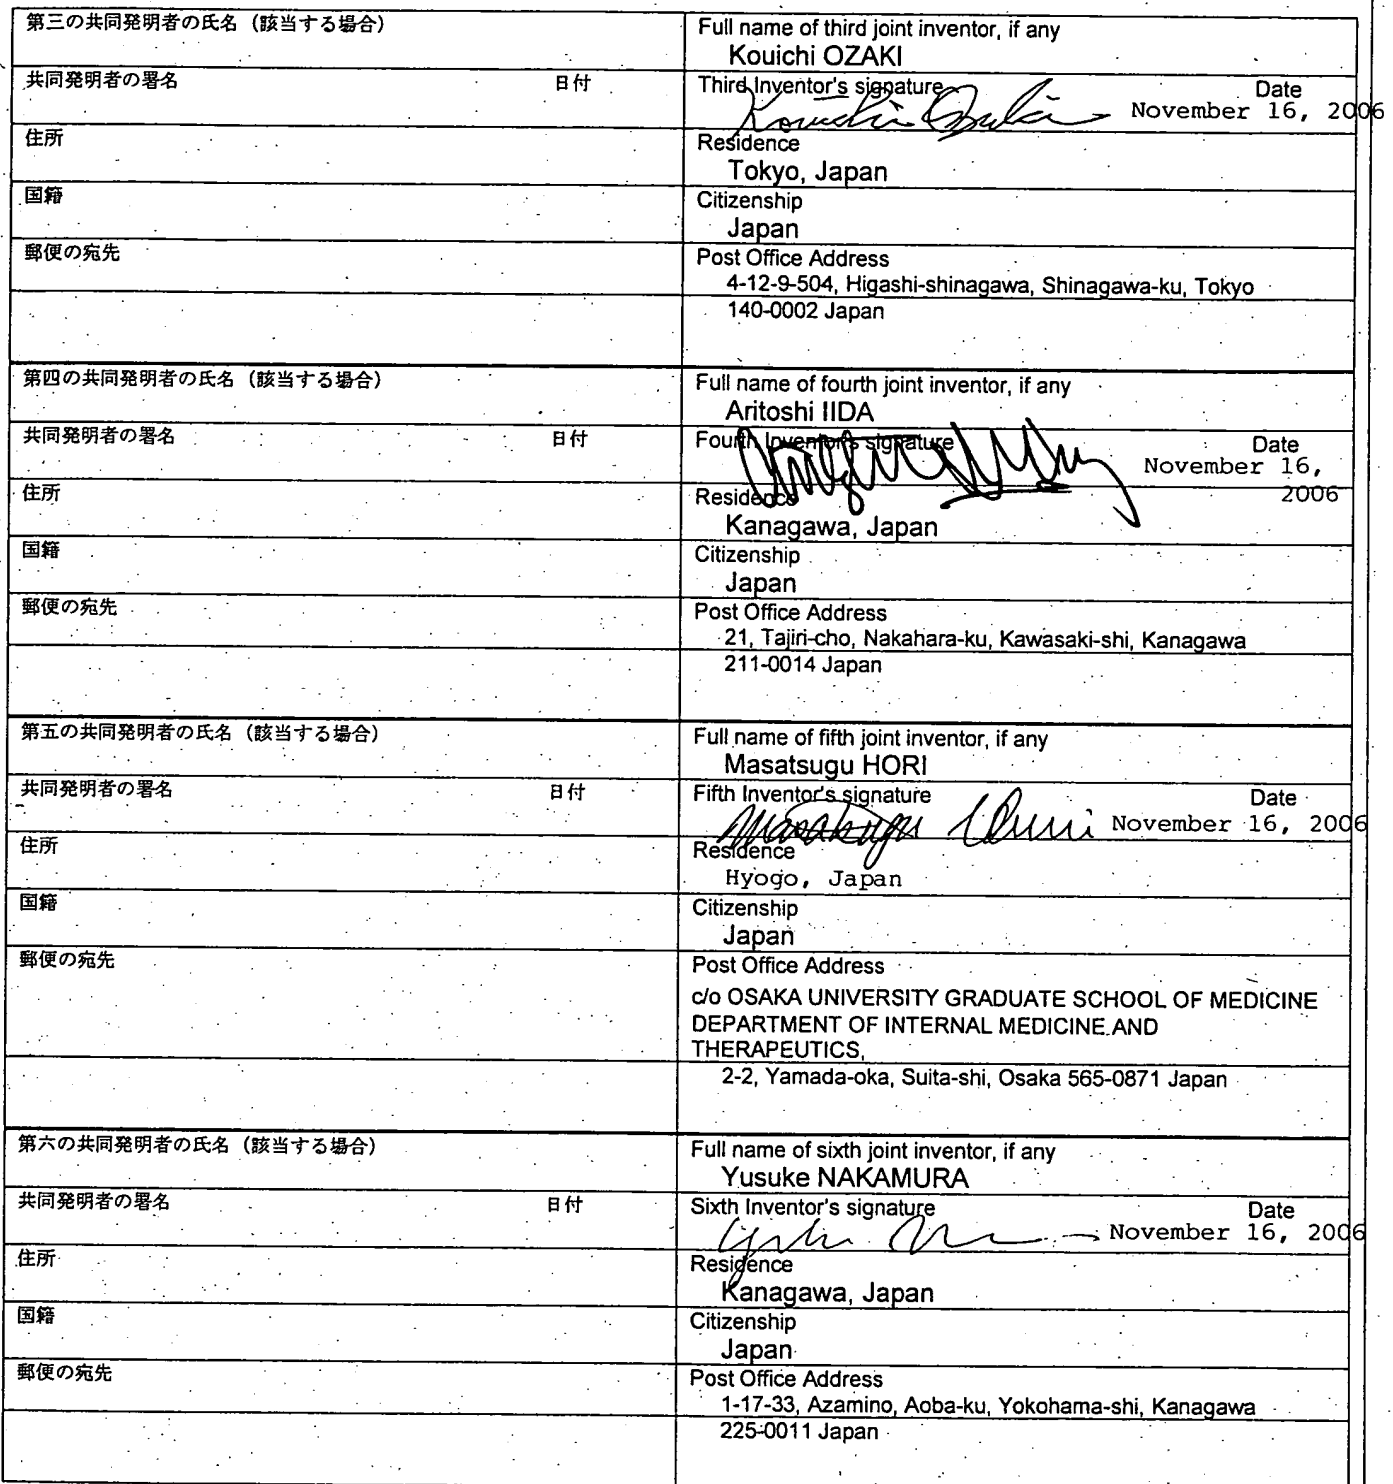 第三の共同発明者の氏名（該当する場合）
Full name of third joint inventor, if any
Kouichi OZAKI
共同発明者の署名 日付
Third Inventor's signature Date
Kouichi Ozaki November 16, 2006
住所
Residence
Tokyo, Japan
国籍
Citizenship
Japan
郵便の宛先
Post Office Address
4-12-9-504, Higashi-shinagawa, Shinagawa-ku, Tokyo
140-0002 Japan
第四の共同発明者の氏名（該当する場合）
Full name of fourth joint inventor, if any
Aritoshi IIDA
共同発明者の署名 日付
Fourth Inventor's signature Date
November 16,
2006
住所
Residence
Kanagawa, Japan
国籍
Citizenship
Japan
郵便の宛先
Post Office Address
21, Tajiri-cho, Nakahara-ku, Kawasaki-shi, Kanagawa
211-0014 Japan
第五の共同発明者の氏名（該当する場合）
Full name of fifth joint inventor, if any
Masatsugu HORI
共同発明者の署名 日付
Fifth Inventor's signature Date
Masatsugu Hori November 16, 2006
住所
Residence
Hyogo, Japan
国籍
Citizenship
Japan
郵便の宛先
Post Office Address
c/o OSAKA UNIVERSITY GRADUATE SCHOOL OF MEDICINE
DEPARTMENT OF INTERNAL MEDICINE AND
THERAPEUTICS,
2-2, Yamada-oka, Suita-shi, Osaka 565-0871 Japan
第六の共同発明者の氏名（該当する場合）
Full name of sixth joint inventor, if any
Yusuke NAKAMURA
共同発明者の署名 日付
Sixth Inventor's signature Date
November 16, 2006
住所
Residence
Kanagawa, Japan
国籍
Citizenship
Japan
郵便の宛先
Post Office Address
1-17-33, Azamino, Aoba-ku, Yokohama-shi, Kanagawa
225-0011 Japan